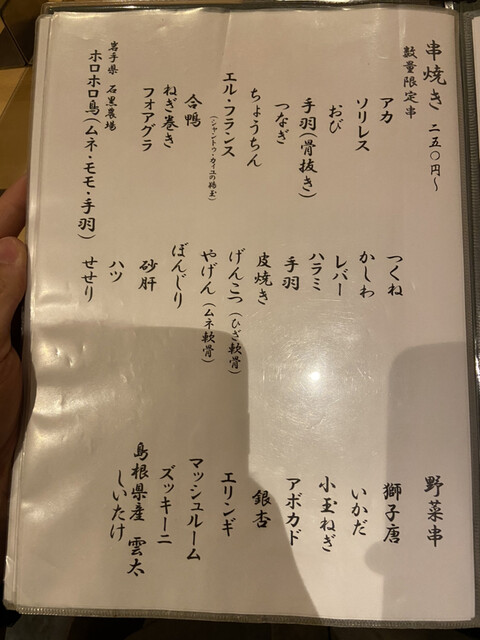 串焼き 二五〇円〜
数量限定串
アカ
ソリレス
おび
手羽(骨抜き)
つなぎ
ちょうちん
エル・フランス
(シャントゥ・カイユの鶉玉)
合鴨
ねぎ巻き
フォアグラ
岩手県 石黒農場
ホロホロ鳥(ムネ・モモ・手羽)
つくね
かしわ
レバー
ハラミ
手羽
皮焼き
げんこつ(ひざ軟骨)
やげん(ムネ軟骨)
ぼんじり
砂肝
ハツ
せせり
野菜串
獅子唐
いかだ
小玉ねぎ
アボカド
銀杏
エリンギ
マッシュルーム
ズッキーニ
島根県産 雲太
しいたけ